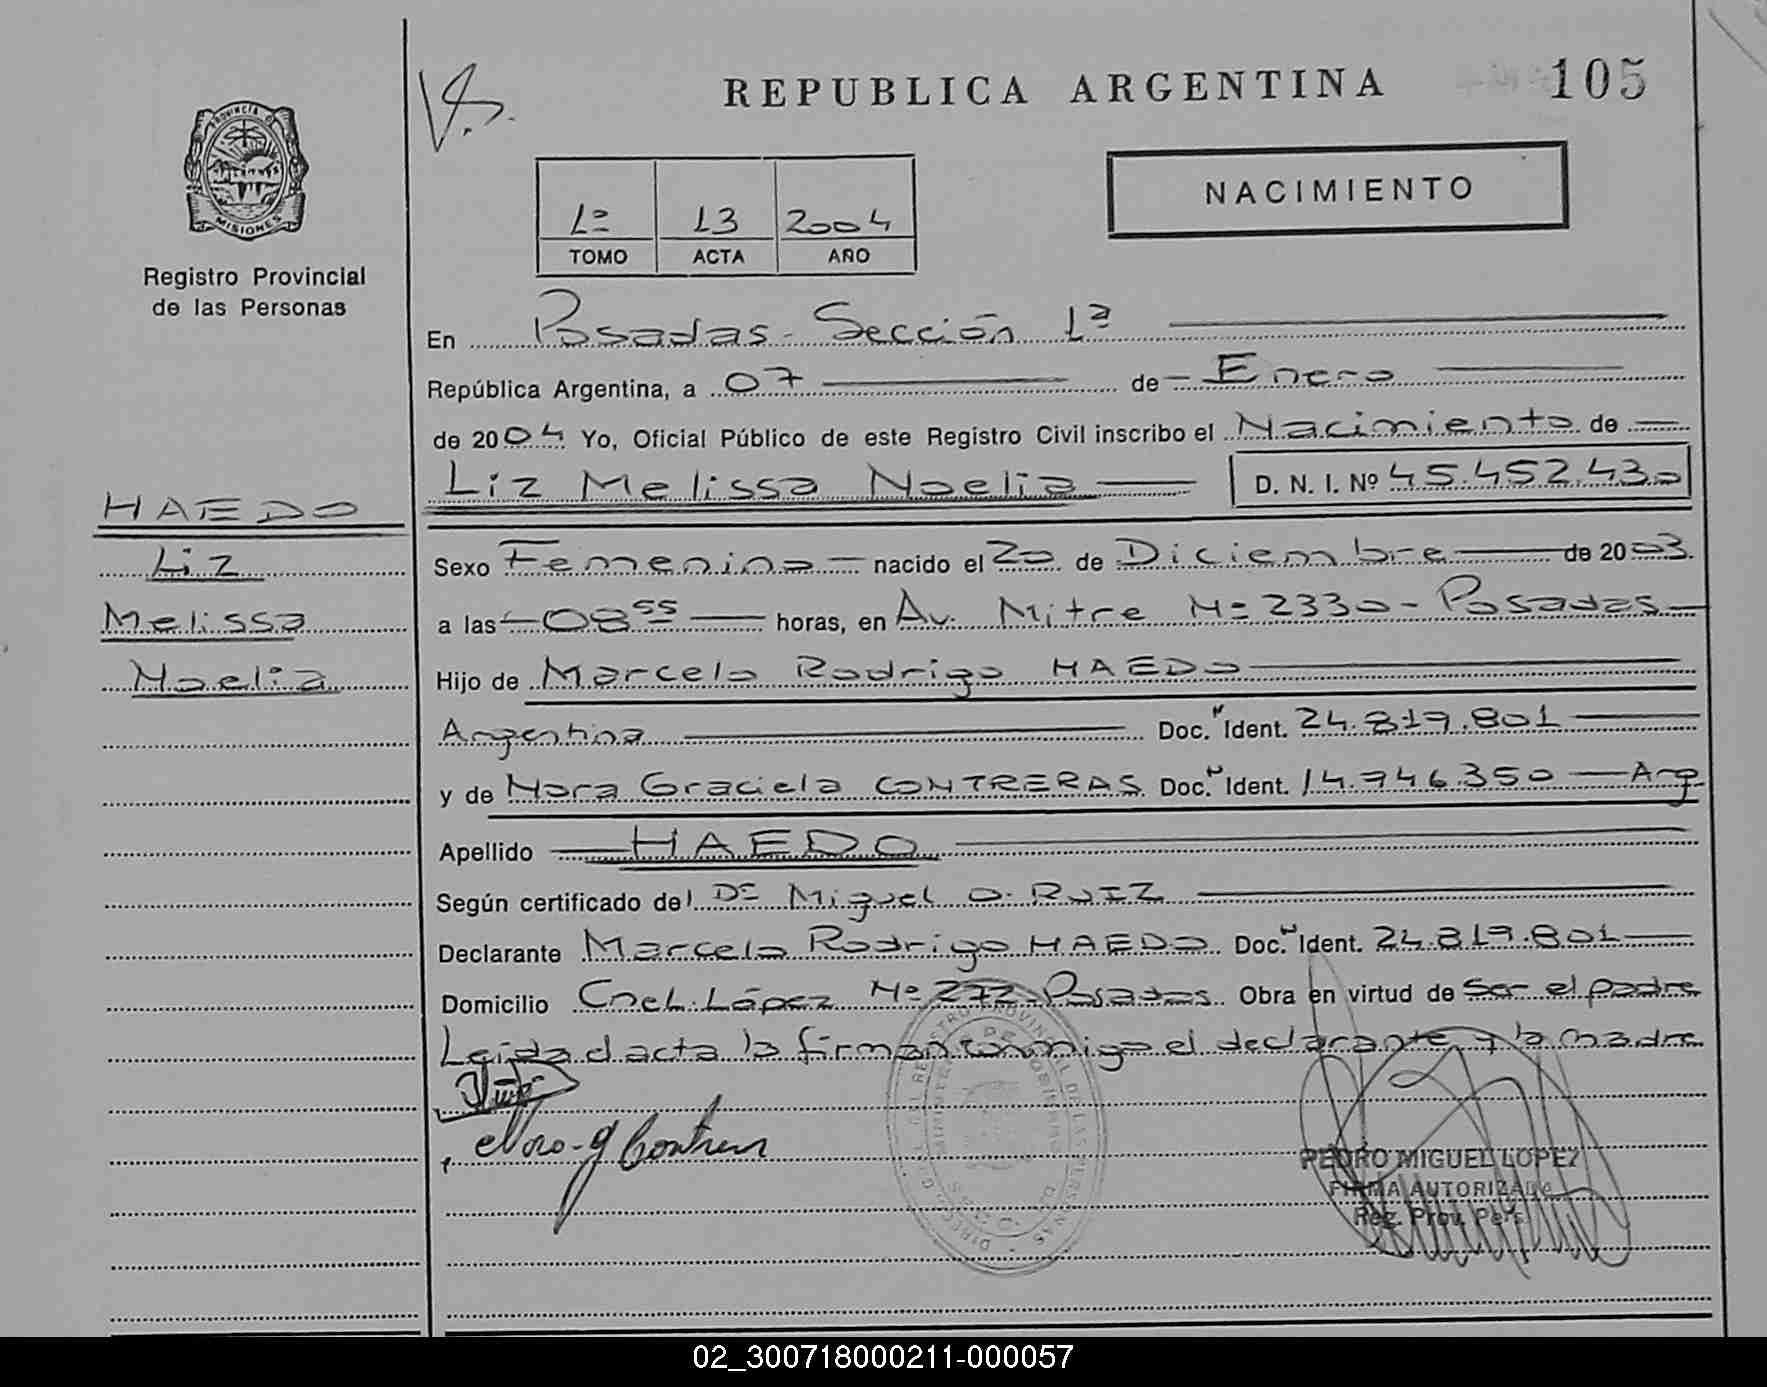 REPUBLICA ARGENTINA
105
PROVINCIA DE
MISIONES
Registro Provincial
de las Personas
1º 13 2004
TOMO ACTA AÑO
NACIMIENTO
En Posadas - Sección 1ª
República Argentina, a 07 de Enero
de 2004 Yo, Oficial Público de este Registro Civil inscribo el Nacimiento de
Liz Melissa Noelia D. N. I. Nº 45.452.430
HAEDO
Liz
Melissa
Noelia
Sexo Femenino nacido el 20 de Diciembre de 2003.
a las 08 55 horas, en Av. Mitre Nº 2330 - Posadas
Hijo de Marcelo Rodrigo HAEDO
Argentina Doc. Ident. 24.819.801
y de Nora Graciela CONTRERAS Doc. Ident. 14.946.350 Arg
Apellido HAEDO
Según certificado del Dr Miguel O. RUIZ
Declarante Marcelo Rodrigo HAEDO Doc. Ident. 24.819.801
Domicilio Cnel. López Nº 272 - Posadas Obra en virtud de ser el padre
Leída el acta la firman conmigo el declarante y la madre
Nora G Contreras
PEDRO MIGUEL LOPEZ
FIRMA AUTORIZADA
Reg. Prov. Pers.
02_300718000211-000057